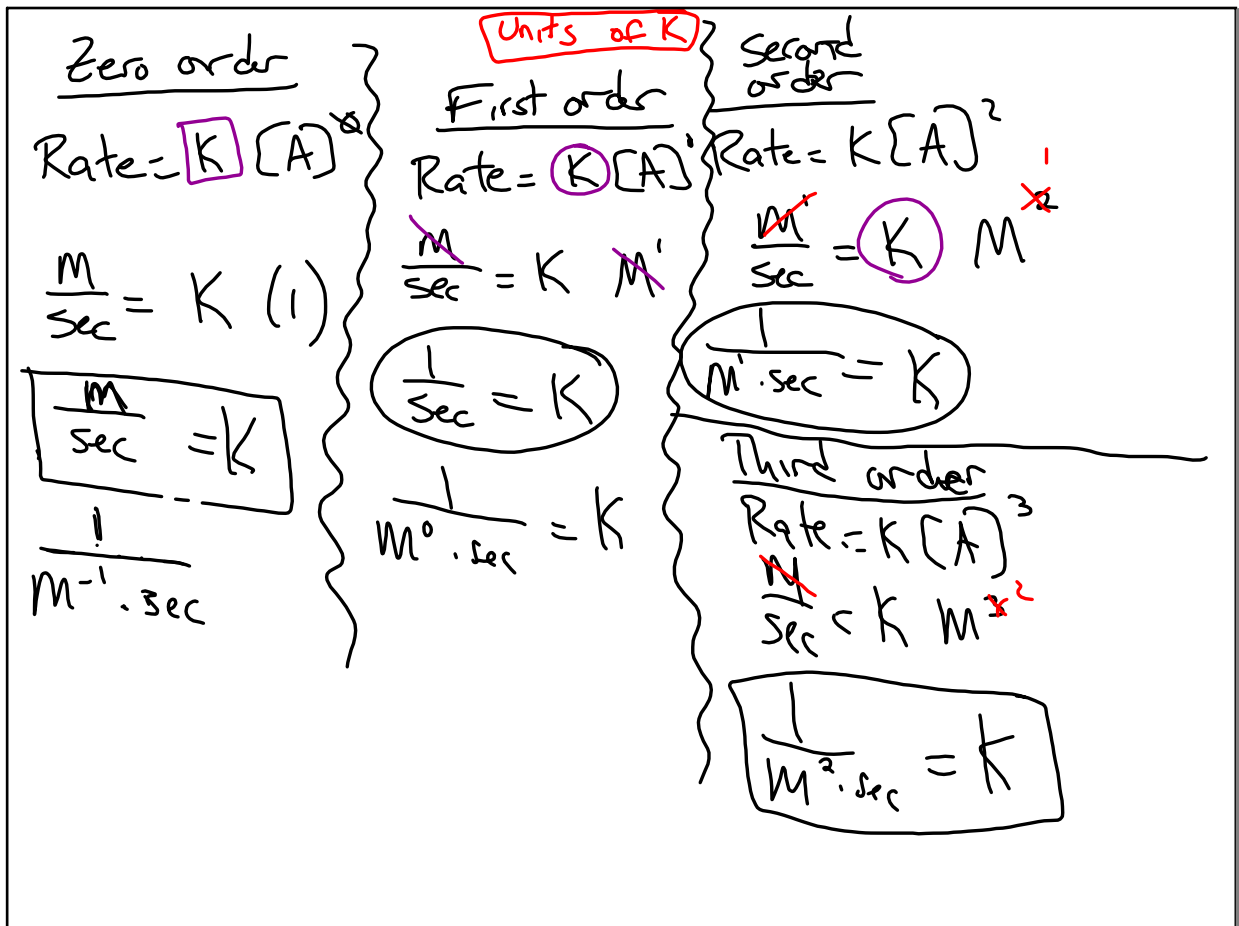 Units of K
Zero order
Rate = K [A]^0
m/sec = K (1)
m/sec = K
1/(m^-1 · sec)
First order
Rate = K [A]^1
m/sec = K M^1
1/sec = K
1/(m^0 · sec) = K
Second
order
Rate = K [A]^2
M^1/sec = K M^2 1
1/(m^1 · sec) = K
Third order
Rate = K [A]^3
M/sec = K m^3 2
1/(m^2 · sec) = K